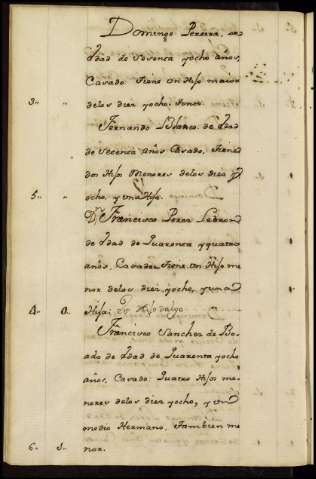 Domingo Pereira, de
Edad de Noventa yocho años,
Casado. Tiene un Hijo maior
3.. " delos diez yocho. Tiene.
Fernando Blanco de Edad
de Secenta años Casado, Tiene
dos Hijos Menores delos diez y
5.. " ocho, y una Hija.
Dn. Francisco Perez Lebron
de Edad de Quarenta y quatro
años, Casado: Tiene un Hijo me
nor delos diez yocho, y una
4.. Hija; es Hijo dalgo
Francisco Sanches de
de Edad de Quarenta yocho
años, Casado: Quatro Hijos me
nores delos diez yocho, y un
medio Hermano. Tambien me
6.. nor.